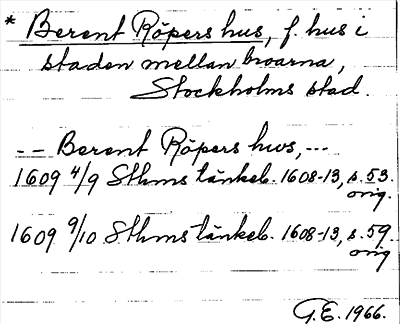 * Berent Röpers hus, f. hus i
staden mellan broarna,
Stockholms stad.
-- Berent Röpers hws, --
1609 4/9 Sthms tänkeb. 1608-13, s. 53.
orig.
1609 9/10 Sthms tänkeb. 1608-13, s. 59.
orig
G.E. 1966.